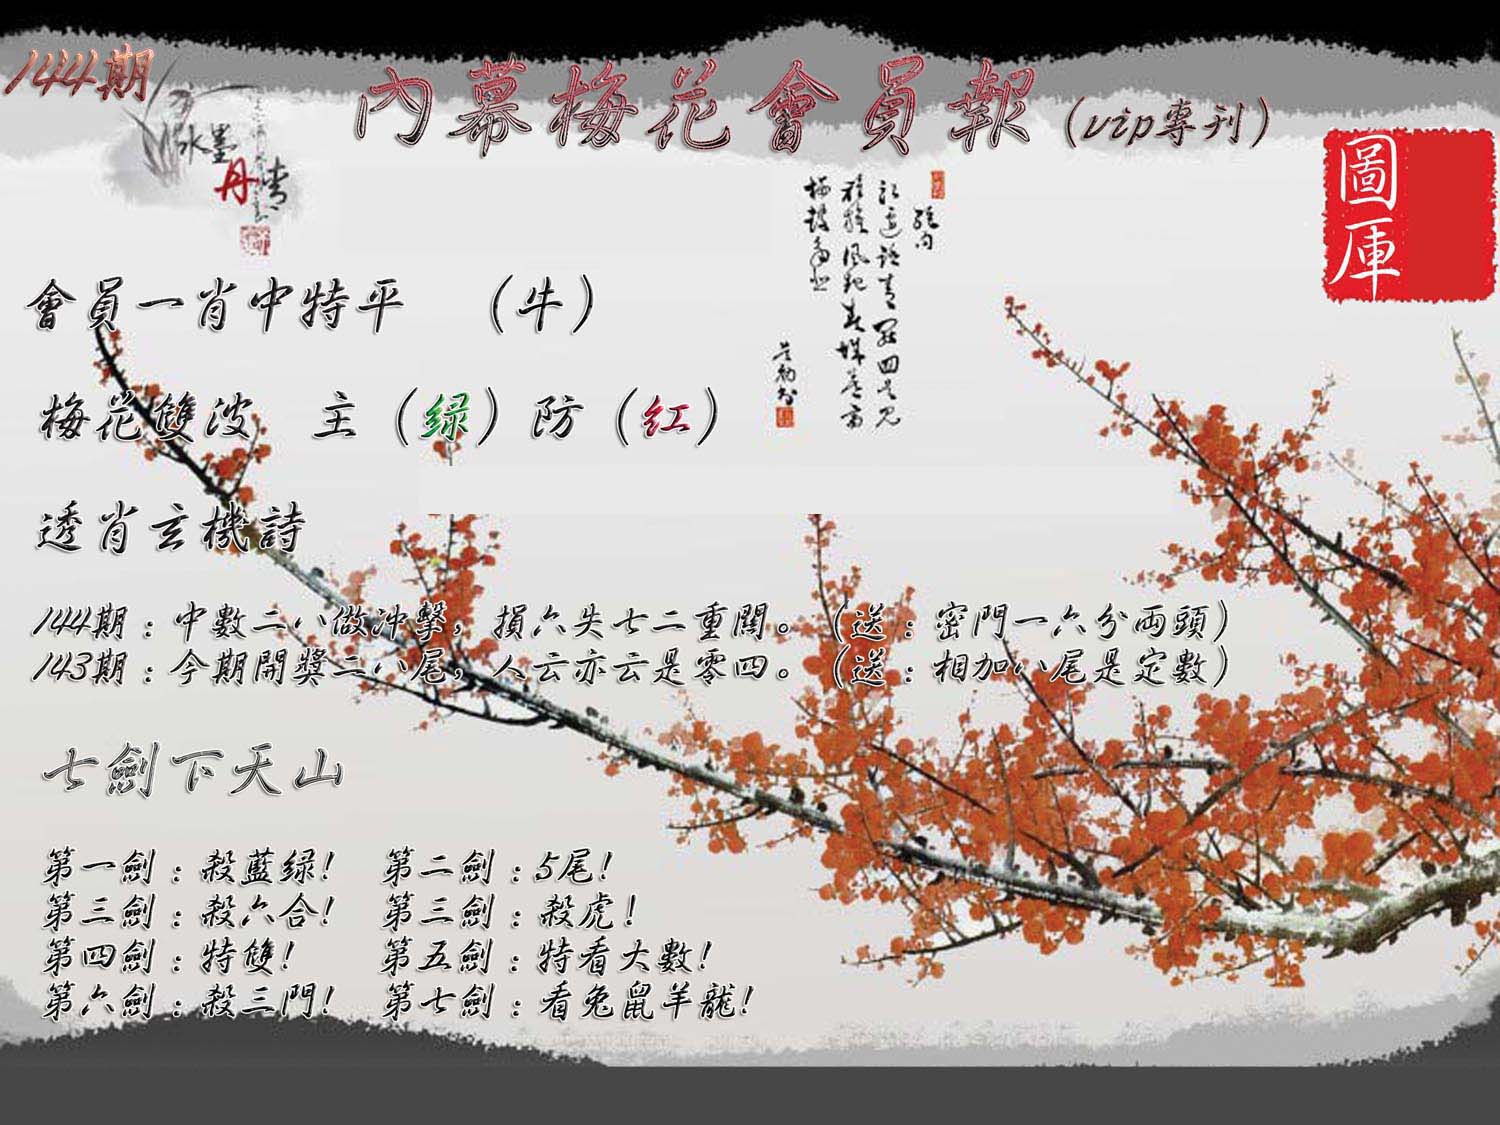 144期
內幕梅花會員報（vip專刊）
水墨
丹青
圖庫
會員一肖中特平　（牛）
梅花雙波　主（绿）防（红）
透肖玄機詩
144期：中數二八做沖擊，損六失七二重關。（送：密門一六分兩頭）
143期：今期開獎二八尾，人云亦云是零四。（送：相加八尾是定數）
七劍下天山
第一劍：殺藍绿!　第二劍：5尾!
第三劍：殺六合!　第三劍：殺虎!
第四劍：特雙!　第五劍：特看大數!
第六劍：殺三門!　第七劍：看兔鼠羊龍!